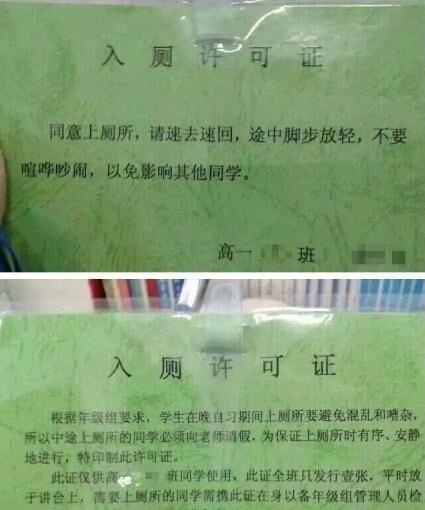 入厕许可证
同意上厕所，请速去速回，途中脚步放轻，不要
喧哗吵闹，以免影响其他同学。
高一 班
入厕许可证
根据年级组要求，学生在晚自习期间上厕所要避免混乱和嘈杂，
所以中途上厕所的同学必须向老师请假，为保证上厕所时有序、安静
地进行，特印制此许可证。
此证仅供高 班同学使用，此证全班只发行壹张，平时放
于讲台上，需要上厕所的同学需携此证在身以备年级组管理人员检